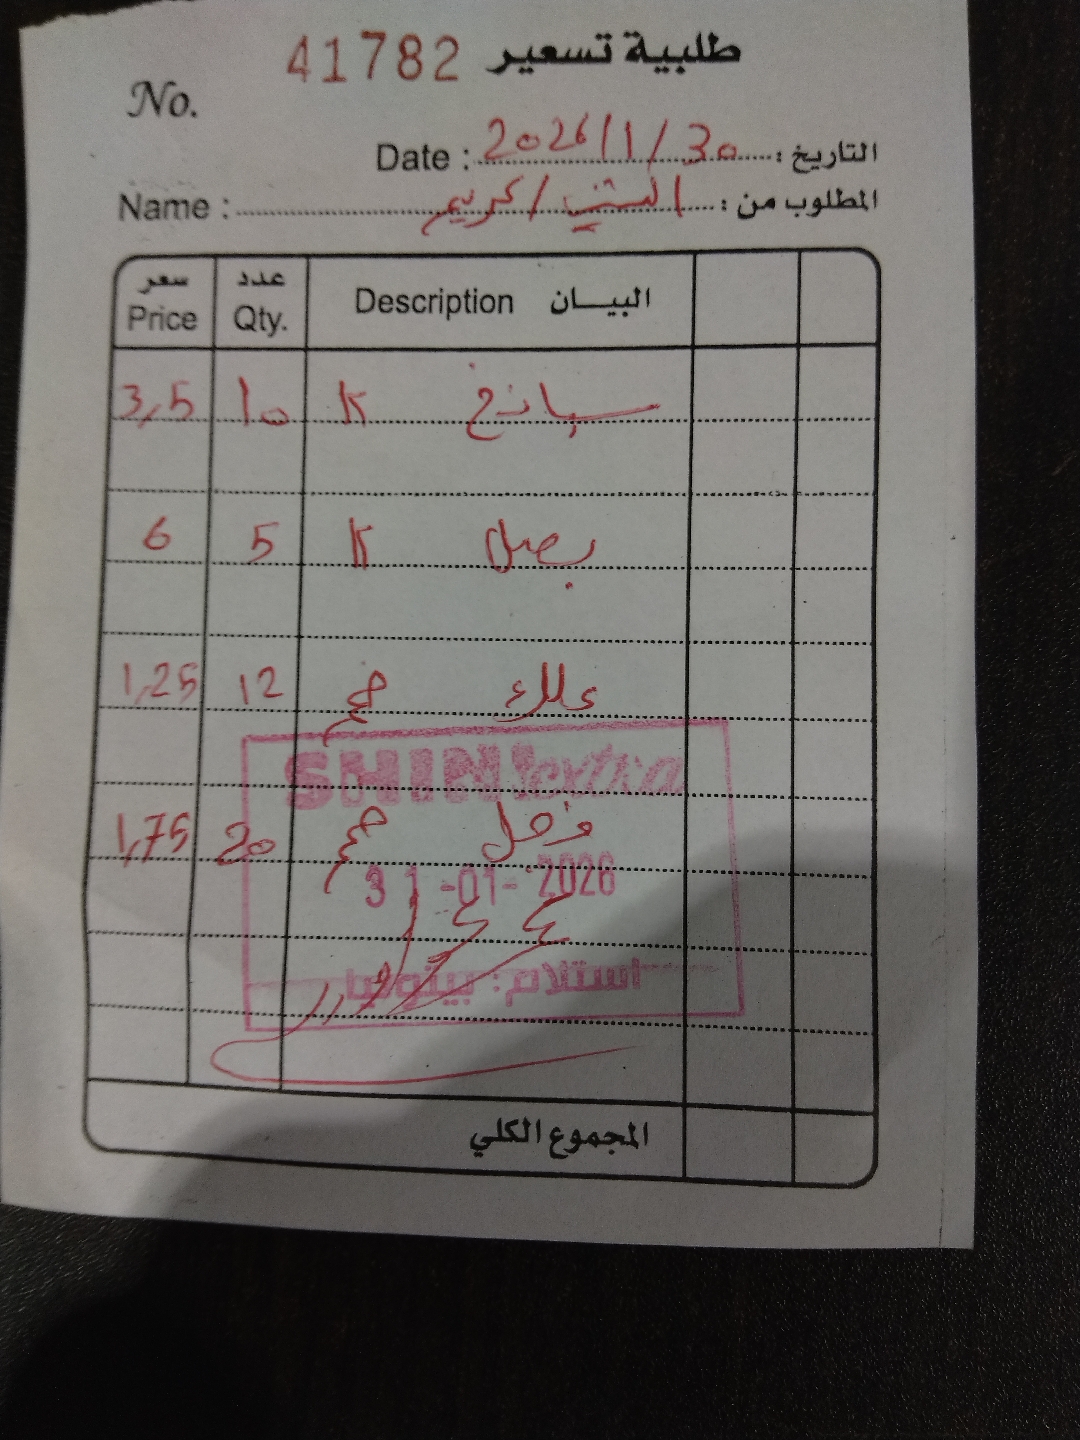 طلبية تسعير 41782
No.
التاريخ : 2026/1/30 Date :
المطلوب من : / كريم Name :
البيـــان Description عدد Qty. سعر Price
سبانخ K 10 3,5
بصل K 5 6
علك 12 1,25
فجل 20 1,75
SHINIextra
31-01-2026
استلام: بينوشا
المجموع الكلي